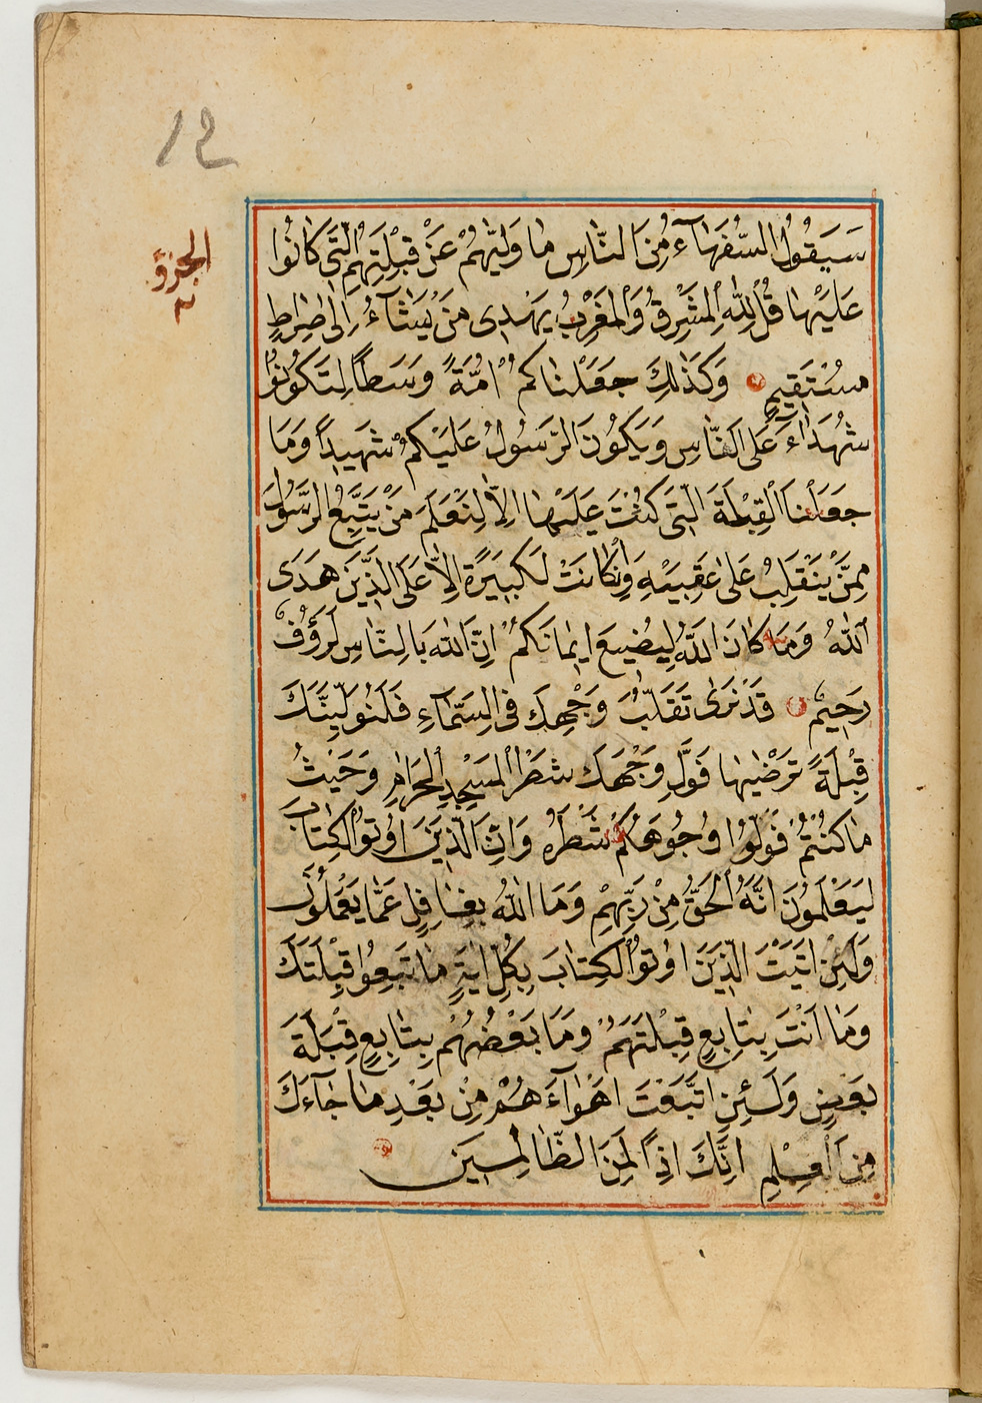 12
الجزؤ
٢
سَيَقُولُ السُّفَهَاۤءُ مِنَ النَّاسِ مَا وَلّٰيهُمْ عَنْ قِبْلَتِهِمُ الَّتِى كَانُوا
عَلَيْهَا قُلْ لِلّٰهِ الْمَشْرِقُ وَالْمَغْرِبُ يَهْدِى مَنْ يَشَاۤءُ اِلٰى صِرَاطٍ
مُسْتَقِيمٍ وَكَذٰلِكَ جَعَلْنَاكُمْ اُمَّةً وَسَطًا لِتَكُونُوا
شُهَدَاءَ عَلَى النَّاسِ وَيَكُونَ الرَّسُولُ عَلَيْكُمْ شَهِيدًا وَمَا
جَعَلْنَا الْقِبْلَةَ الَّتِى كُنْتَ عَلَيْهَا اِلَّا لِنَعْلَمَ مَنْ يَتَّبِعُ الرَّسُولَ
مِمَّنْ يَنْقَلِبُ عَلٰى عَقِبَيْهِ وَاِنْ كَانَتْ لَكَبِيرَةً اِلَّا عَلَى الَّذِينَ هَدَى
اللّٰهُ وَمَا كَانَ اللّٰهُ لِيُضِيعَ اِيمَانَكُمْ اِنَّ اللّٰهَ بِالنَّاسِ لَرَؤُفٌ
رَحِيمٌ قَدْ نَرٰى تَقَلُّبَ وَجْهِكَ فِى السَّمَاۤءِ فَلَنُوَلِّيَنَّكَ
قِبْلَةً تَرْضٰيهَا فَوَلِّ وَجْهَكَ شَطْرَ الْمَسْجِدِ الْحَرَامِ وَحَيْثُ
مَا كُنْتُمْ فَوَلُّوا وُجُوهَكُمْ شَطْرَهُ وَاِنَّ الَّذِينَ اُوتُوا الْكِتَابَ
لَيَعْلَمُونَ اَنَّهُ الْحَقُّ مِنْ رَبِّهِمْ وَمَا اللّٰهُ بِغَافِلٍ عَمَّا يَعْمَلُونَ
وَلَئِنْ اَتَيْتَ الَّذِينَ اُوتُوا الْكِتَابَ بِكُلِّ اٰيَةٍ مَا تَبِعُوا قِبْلَتَكَ
وَمَا اَنْتَ بِتَابِعٍ قِبْلَتَهُمْ وَمَا بَعْضُهُمْ بِتَابِعٍ قِبْلَةَ
بَعْضٍ وَلَئِنِ اتَّبَعْتَ اَهْوَاۤءَهُمْ مِنْ بَعْدِ مَا جَاۤءَكَ
مِنَ الْعِلْمِ اِنَّكَ اِذًا لَمِنَ الظَّالِمِينَ